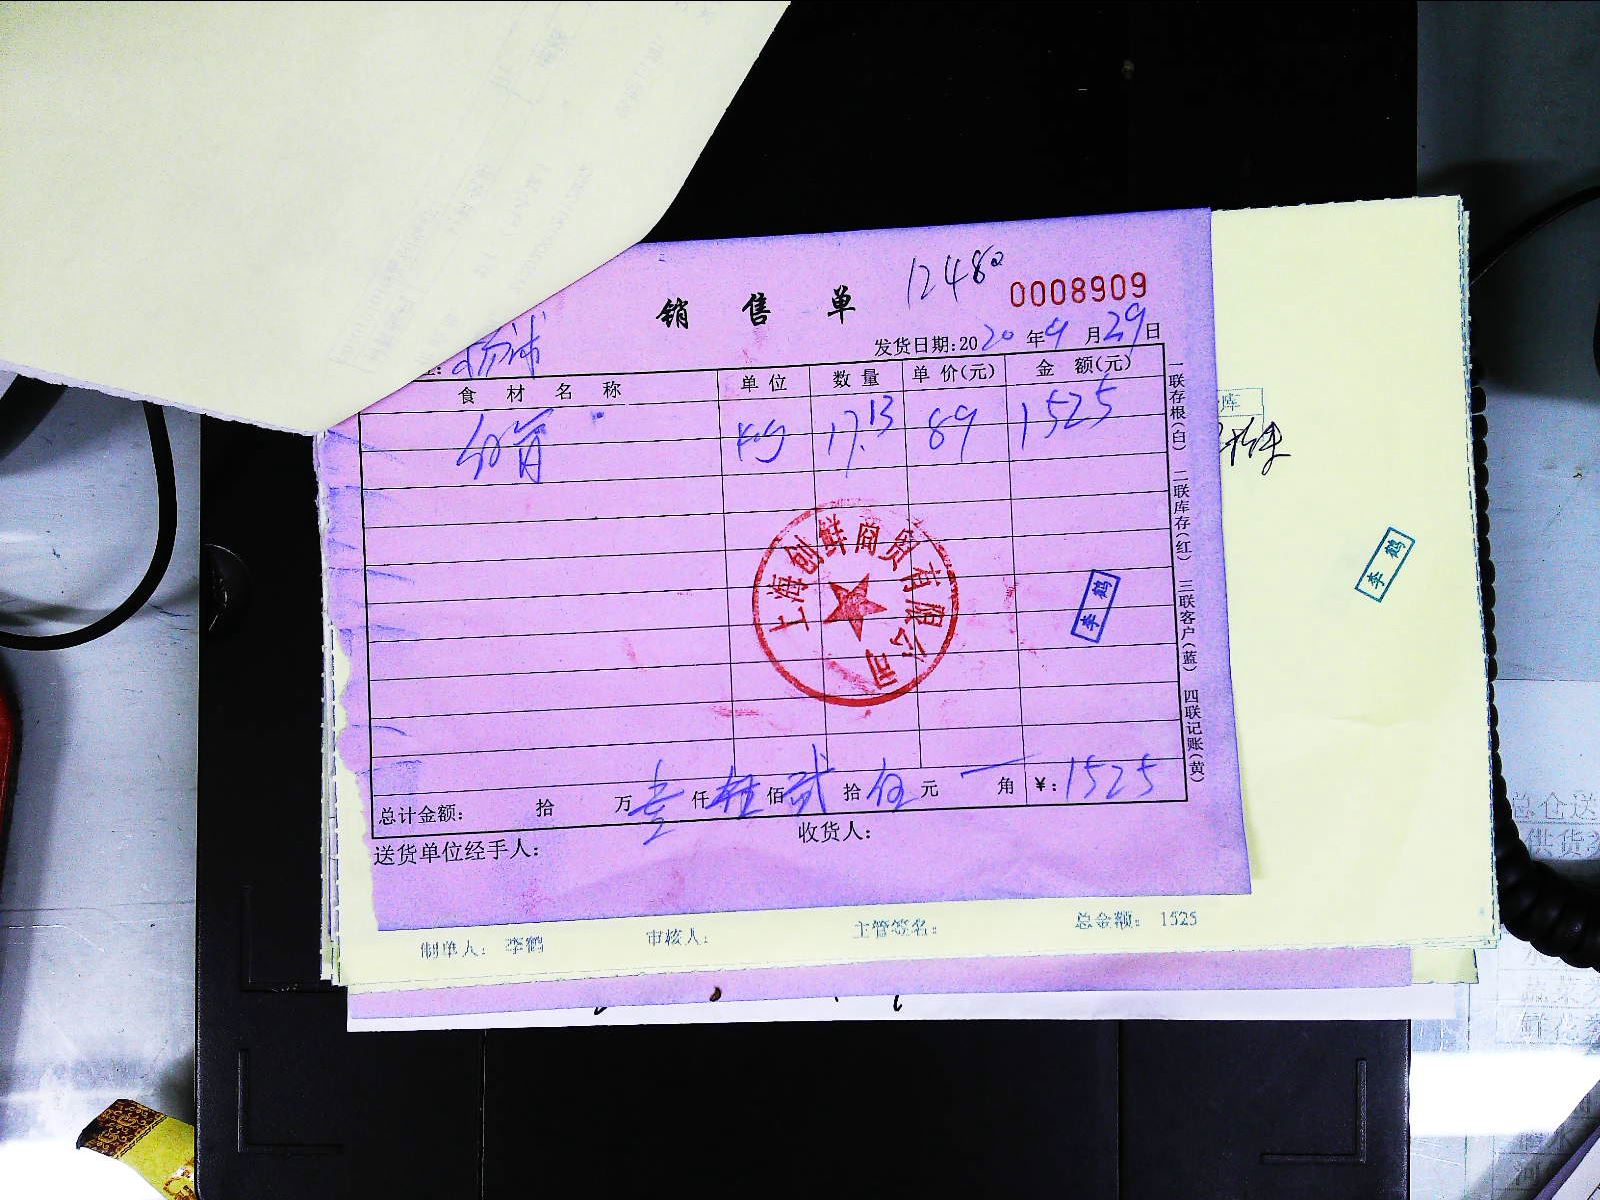 销售单 12480 0008909
发货日期:2020年9月29日
食材名称 单位 数量 单价(元) 金额(元)
kg 17.13 89 1525
上海创鲜商贸有限公司
李鹤
李鹤
一联存根(白) 二联库存(红) 三联客户(蓝) 四联记账(黄)
总计金额: 拾 万壹仟伍佰贰拾伍元 角 ¥:1525
送货单位经手人: 收货人:
制单人: 李鹤 审核人: 主管签名: 总金额: 1525
库
总仓送
供货
蔬菜
鲜花